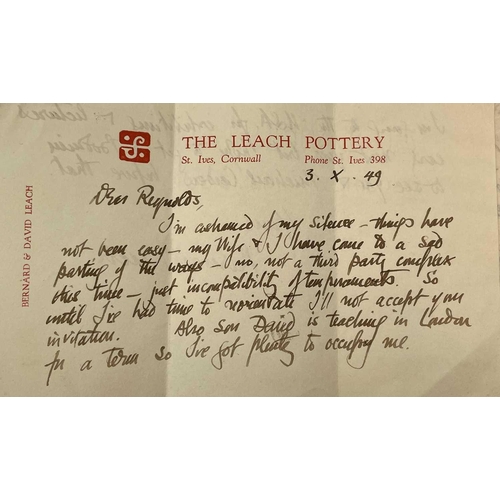 THE LEACH POTTERY
St. Ives, Cornwall Phone St. Ives 398
BERNARD & DAVID LEACH
3. X. 49
Dear Reynolds,
I'm ashamed of my silence – things have
not been easy – my Wife & I have come to a sad
parting of the ways – no, not a third party complex
this time – just incompatibility of temproments. So
until I've had time to reorientate I'll not accept your
invitation. Also Son David is teaching in London
for a term so I've got plenty to occupy me.